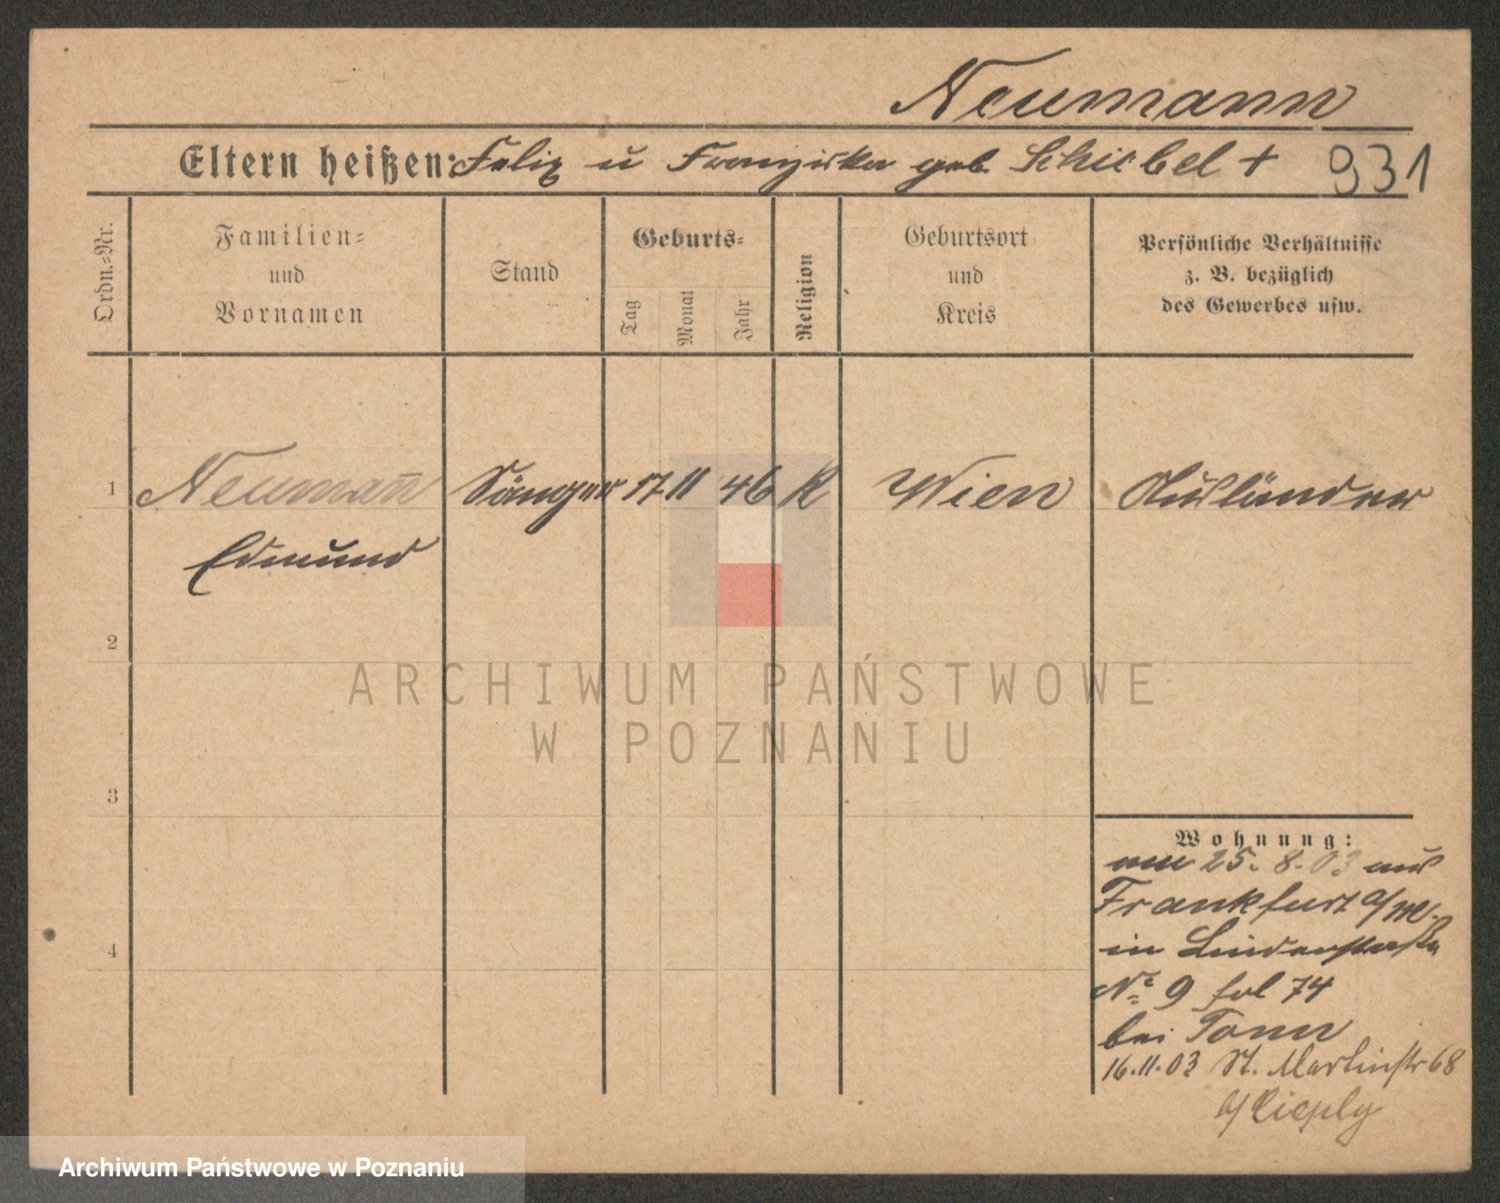 Neumann
Eltern heißen: Felix u Franziska geb. Schiebel + 931
Ordn.-Nr.
Familien-
und
Vornamen
Stand
Geburts-
Tag
Monat
Jahr
Religion
Geburtsort
und
Kreis
Persönliche Verhältnisse
z. B. bezüglich
des Gewerbes usw.
1 Neumann̄ Sänger 17 11 46 K Wien Ausländer
Edmund
2
ARCHIWUM PAŃSTWOWE
W POZNANIU
3
Wohnung:
am 25. 8. 03 aus
Frankfurt a/M.
in Lindenstraße
4
No 9 fol 74
bei Tonn
16.11.03 St. Martinstr 68
b/ Cieply
Archiwum Państwowe w Poznaniu